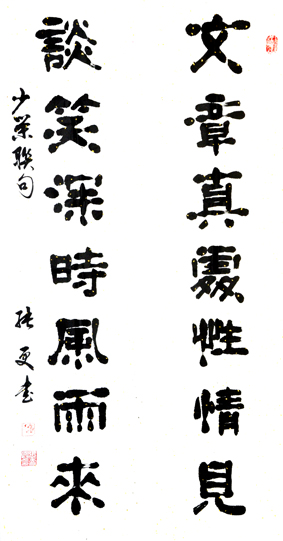 文章真處性情見
談笑深時風雨來
少棠聯句
張更書